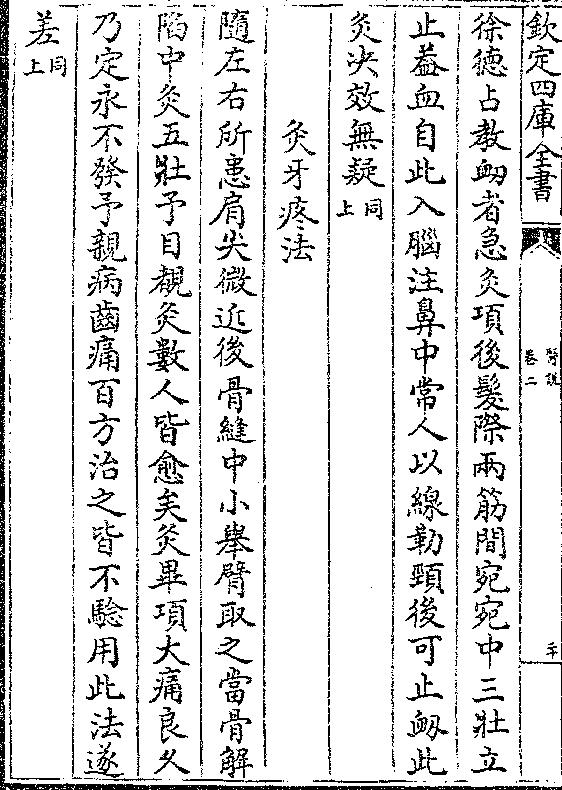 欽定四庫全書
醫說
卷二
二十
徐德占教衂者急灸項後髮際兩筋間宛宛中三壯立
止葢血自此入腦注鼻中常人以線勒頸後可止衂此
灸决效無疑同上
灸牙疼法
隨左右所患肩尖微近後骨縫中小舉臂取之當骨解
陷中灸五壯予目覩灸數人皆愈矣灸畢項大痛良久
乃定永不發予親病齒痛百方治之皆不驗用此法遂
差同上